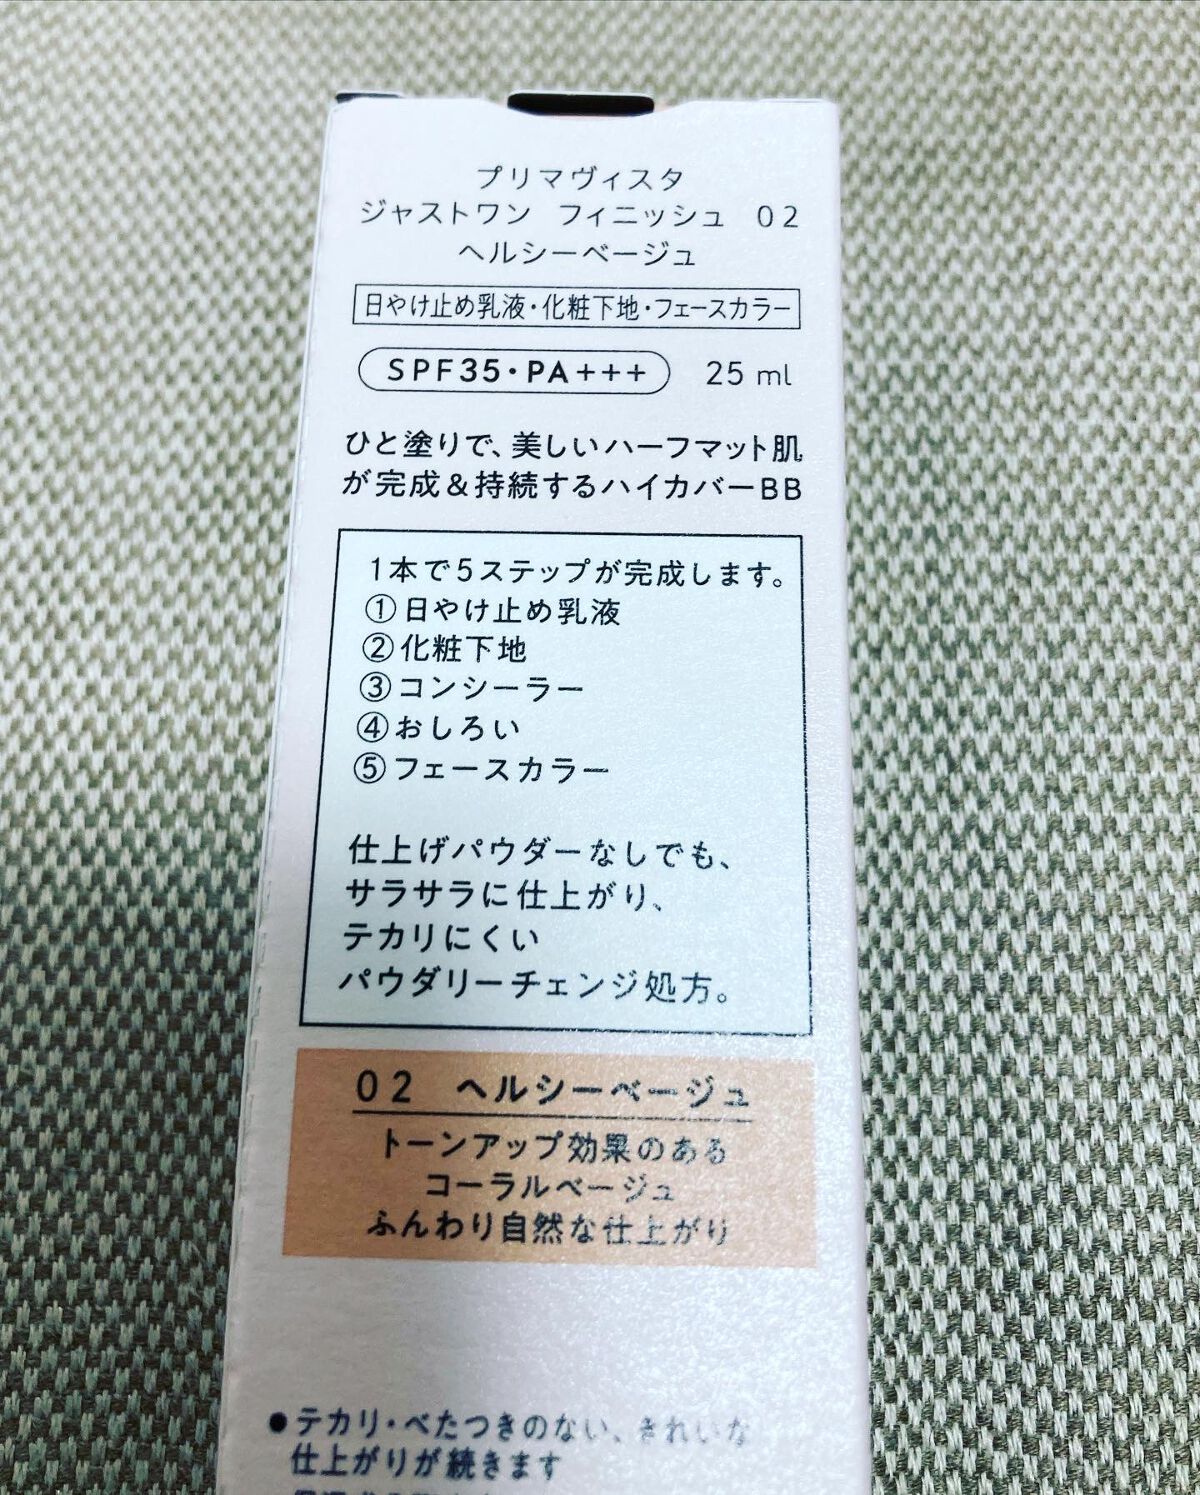 プリマヴィスタ
ジャストワン フィニッシュ 02
ヘルシーベージュ
日やけ止め乳液・化粧下地・フェースカラー
SPF35・PA+++ 25 ml
ひと塗りで、美しいハーフマット肌
が完成&持続するハイカバーBB
1本で5ステップが完成します。
①日やけ止め乳液
②化粧下地
③コンシーラー
④おしろい
⑤フェースカラー
仕上げパウダーなしでも、
サラサラに仕上がり、
テカリにくい
パウダリーチェンジ処方。
02 ヘルシーベージュ
トーンアップ効果のある
コーラルベージュ
ふんわり自然な仕上がり
●テカリ・べたつきのない、きれいな
仕上がりが続きます